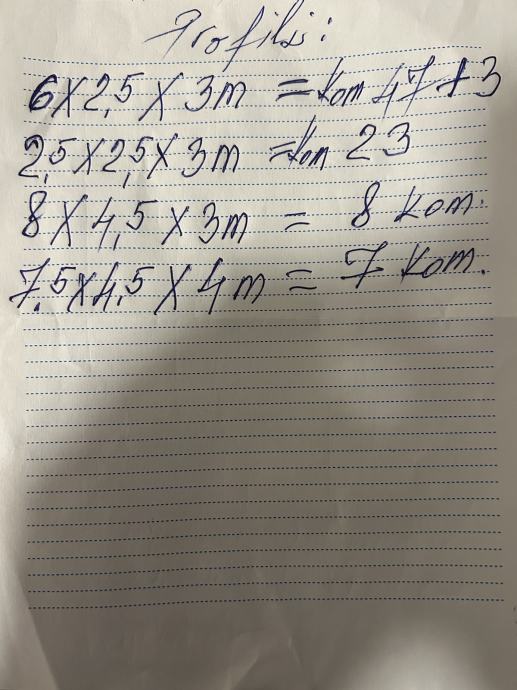 Profili:
6X2,5 X 3m = kom 47+3
2,5X2,5X3m = kom 23
8 X 4,5 X 3m = 8 kom.
7,5X4,5 X 4m = 7 kom.